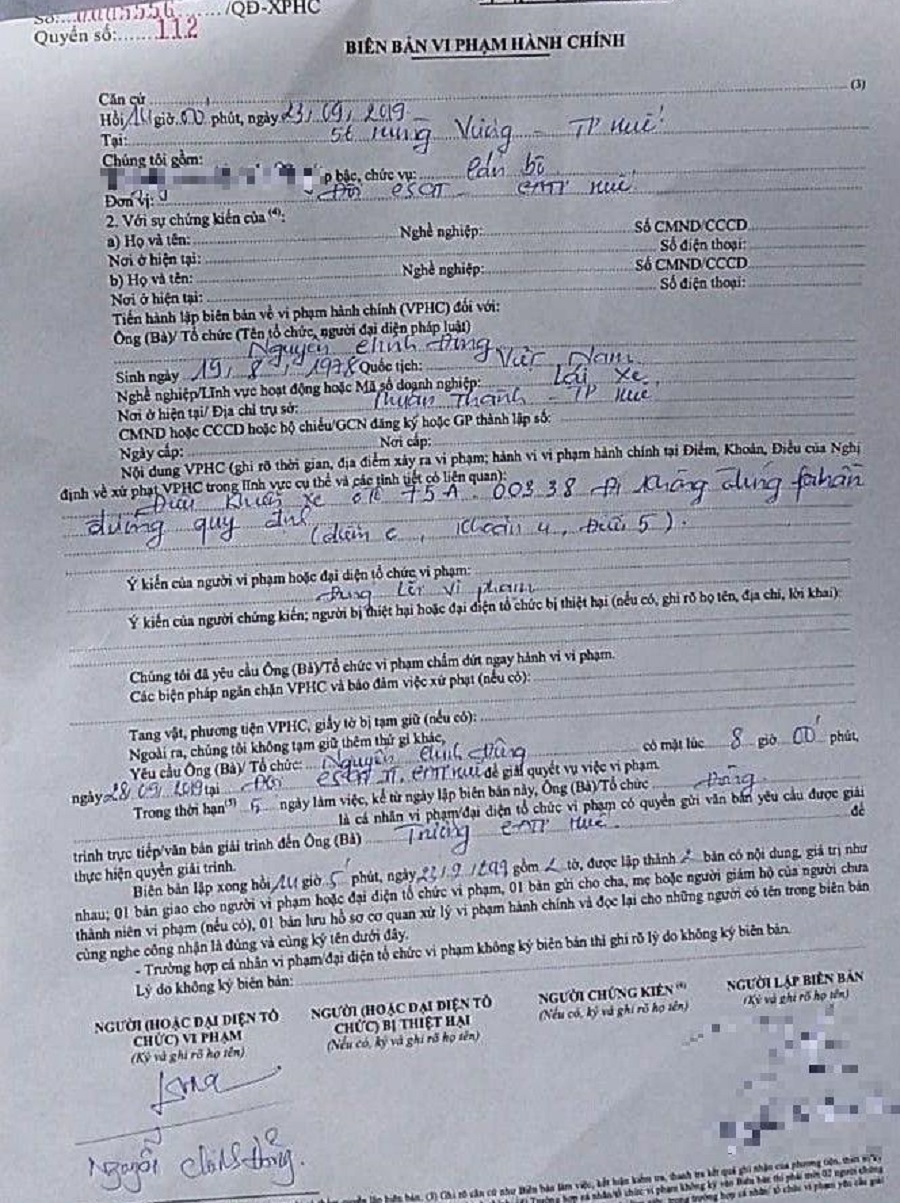 Số:....0005556..../QĐ-XPHC
Quyển số:......112
BIÊN BẢN VI PHẠM HÀNH CHÍNH
Căn cứ (3)
Hồi 14 giờ 00 phút, ngày 23/09/2019
Tại: Hùng Vương - TP Huế
Chúng tôi gồm:
p bậc, chức vụ: Cán bộ
Đơn vị: Đội CSGT - CATP Huế
2. Với sự chứng kiến của (4):
a) Họ và tên: Nghề nghiệp: Số CMND/CCCD
Nơi ở hiện tại: Số điện thoại:
b) Họ và tên: Nghề nghiệp: Số CMND/CCCD
Nơi ở hiện tại: Số điện thoại:
Tiến hành lập biên bản về vi phạm hành chính (VPHC) đối với:
Ông (Bà)/ Tổ chức (Tên tổ chức, người đại diện pháp luật)
Nguyễn Chính Dũng
Sinh ngày 19/8/1978 Quốc tịch: Việt Nam
Nghề nghiệp/Lĩnh vực hoạt động hoặc Mã số doanh nghiệp: Lái xe
Nơi ở hiện tại/ Địa chỉ trụ sở: Thuận Thành - TP Huế
CMND hoặc CCCD hoặc hộ chiếu/GCN đăng ký hoặc GP thành lập số:
Ngày cấp: Nơi cấp:
Nội dung VPHC (ghi rõ thời gian, địa điểm xảy ra vi phạm; hành vi vi phạm hành chính tại Điểm, Khoản, Điều của Nghị
định về xử phạt VPHC trong lĩnh vực cụ thể và các tình tiết có liên quan):
Điều khiển xe ôtô 75A.00338 đi không đúng phần
đường quy định (điểm c, khoản 4, Điều 5).
Ý kiến của người vi phạm hoặc đại diện tổ chức vi phạm:
Đúng lỗi vi phạm
Ý kiến của người chứng kiến; người bị thiệt hại hoặc đại diện tổ chức bị thiệt hại (nếu có, ghi rõ họ tên, địa chỉ, lời khai):
Chúng tôi đã yêu cầu Ông (Bà)/Tổ chức vi phạm chấm dứt ngay hành vi vi phạm.
Các biện pháp ngăn chặn VPHC và bảo đảm việc xử phạt (nếu có):
Tang vật, phương tiện VPHC, giấy tờ bị tạm giữ (nếu có):
Ngoài ra, chúng tôi không tạm giữ thêm thứ gì khác.
Yêu cầu Ông (Bà)/ Tổ chức: Nguyễn Chính Dũng có mặt lúc 8 giờ 00 phút,
ngày 28/09/2019 tại Đội CSGT TT. CATP Huế để giải quyết vụ việc vi phạm.
Trong thời hạn (5) 5 ngày làm việc, kể từ ngày lập biên bản này, Ông (Bà)/Tổ chức Dũng
là cá nhân vi phạm/đại diện tổ chức vi phạm có quyền gửi văn bản yêu cầu được giải
trình trực tiếp/văn bản giải trình đến Ông (Bà) Trưởng CATP Huế để
thực hiện quyền giải trình.
Biên bản lập xong hồi 14 giờ 5 phút, ngày 23/9/ gồm tờ, được lập thành 2 bản có nội dung, giá trị như
nhau; 01 bản giao cho người vi phạm hoặc đại diện tổ chức vi phạm, 01 bản gửi cho cha, mẹ hoặc người giám hộ của người chưa
thành niên vi phạm (nếu có), 01 bản lưu hồ sơ cơ quan xử lý vi phạm hành chính và đọc lại cho những người có tên trong biên bản
cùng nghe công nhận là đúng và cùng ký tên dưới đây.
- Trường hợp cá nhân vi phạm/đại diện tổ chức vi phạm không ký biên bản thì ghi rõ lý do không ký biên bản.
Lý do không ký biên bản:
NGƯỜI (HOẶC ĐẠI DIỆN TỔ CHỨC) VI PHẠM
(Ký và ghi rõ họ tên)
NGƯỜI (HOẶC ĐẠI DIỆN TỔ CHỨC) BỊ THIỆT HẠI
(Nếu có, ký và ghi rõ họ tên)
NGƯỜI CHỨNG KIẾN (6)
(Nếu có, ký và ghi rõ họ tên)
NGƯỜI LẬP BIÊN BẢN
(Ký và ghi rõ họ tên)
Nguyễn Chính Dũng.